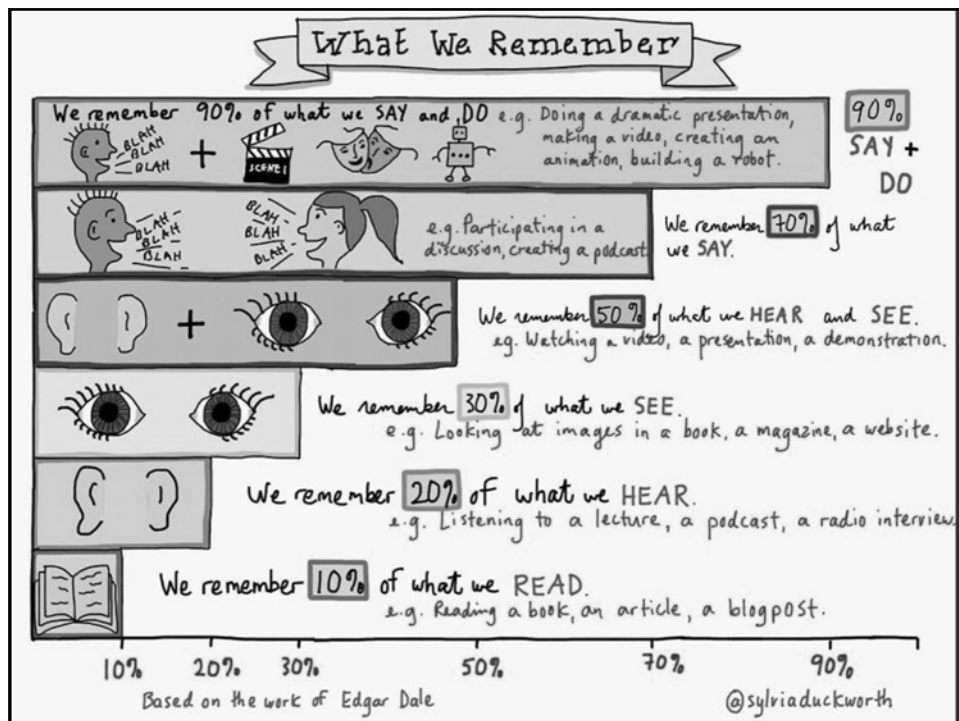 What We Remember
We remember 90% of what we SAY and DO e.g. Doing a dramatic presentation,
making a video, creating an
animation, building a robot.
90%
SAY +
DO
BLAH
BLAH
BLAH
+
SCENE 1
BLAH
BLAH
BLAH
BLAH
BLAH
BLAH
e.g. Participating in a
discussion, creating a podcast.
We remember 70% of what
we SAY.
+
We remember 50% of what we HEAR and SEE.
eg. Watching a video, a presentation, a demonstration.
We remember 30% of what we SEE.
e.g. Looking at images in a book, a magazine, a website.
We remember 20% of what we HEAR.
e.g. Listening to a lecture, a podcast, a radio interview.
We remember 10% of what we READ.
e.g. Reading a book, an article, a blogpost.
10% 20% 30% 50% 70% 90%
Based on the work of Edgar Dale @sylviaduckworth